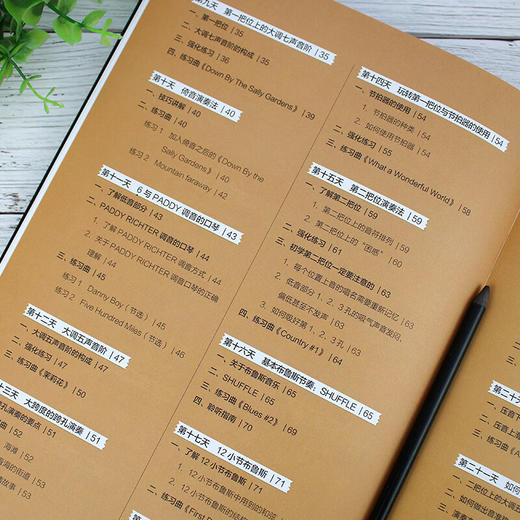 第九天 第一把位上的大调七声音阶 | 35
一、第一把位 | 35
二、大调七声音阶的构成 | 36
三、强化练习 | 36
四、练习曲《Down By The Sally Gardens》 | 39
第十天 倚音演奏法 | 40
一、技巧讲解 | 40
二、练习曲 | 40
练习 1 加入倚音之后的《Down By the
Sally Gardens》 | 40
练习 2 Mountain faraway | 42
第十一天 6 与 PADDY 调音的口琴 | 43
一、了解低音部分 | 43
二、PADDY RICHTER 调音的口琴 | 44
1. 了解 PADDY RICHTER 调音方式 | 44
2. 关于 PADDY RICHTER 调音口琴的正确
理解 | 44
三、练习曲 | 45
练习 1 Danny Boy（节选） | 45
练习 2 Five Hundred Miles（节选） | 46
第十二天 大调五声音阶 | 47
一、大调五声音阶的构成 | 47
二、强化练习 | 47
三、练习曲《茉莉花》 | 50
十三天 大跨度的跨孔演奏 | 51
孔演奏的要点 | 51
| 52
海滩 | 52
海的街道 | 53
故事 | 53
第十四天 玩转第一把位与节拍器的使用 | 54
一、节拍器的使用 | 54
1. 节拍器的种类 | 54
2. 如何使用节拍器 | 54
二、强化练习 | 55
三、练习曲《What a Wonderful World》 | 58
第十五天 第二把位演奏法 | 59
一、了解第二把位 | 59
1. 第二把位上的音符排列 | 59
2. 第二把位上的“困惑” | 60
二、强化练习 | 61
三、初学第二把位一定要注意的 | 63
1. 每个位置上音的唱名需要重新记忆 | 63
2. 低音部分 1、2、3 孔的吸气声音发闷、
偏低甚至不发声 | 63
3. 如何吸好第 1、2、3 孔 | 63
四、练习曲《Country #1》 | 63
第十六天 基本布鲁斯节奏：SHUFFLE | 65
一、关于布鲁斯音乐 | 65
二、SHUFFLE | 65
三、练习曲《Blues #2》 | 69
四、聆听指南 | 70
第十七天 12 小节布鲁斯 | 71
一、了解 12 小节布鲁斯 | 71
1. 12 小节布鲁斯中用到的和弦
2. 12 小节布鲁斯的结构
二、练习曲
第二十一天 如何